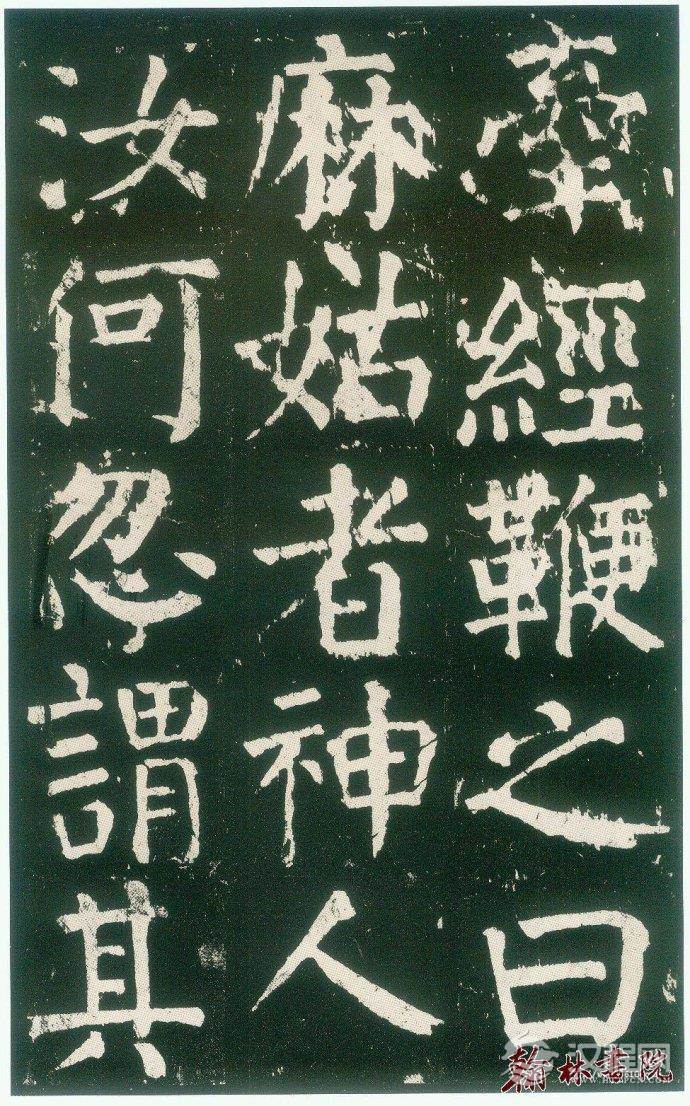 牽經鞭之曰
麻姑者神人
汝何忽謂其
汉程网
翰林書院